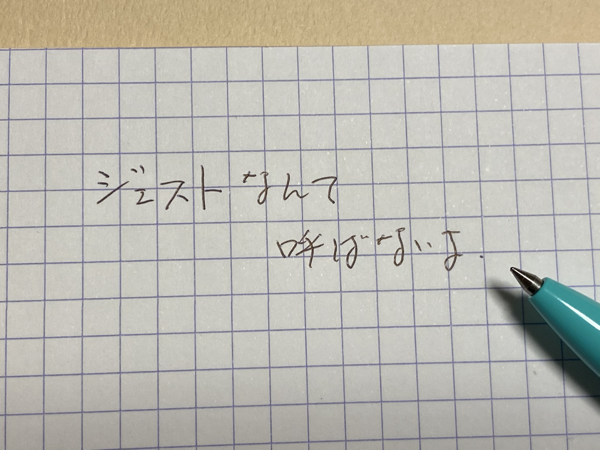 ジェストなんて
呼ばないよ.